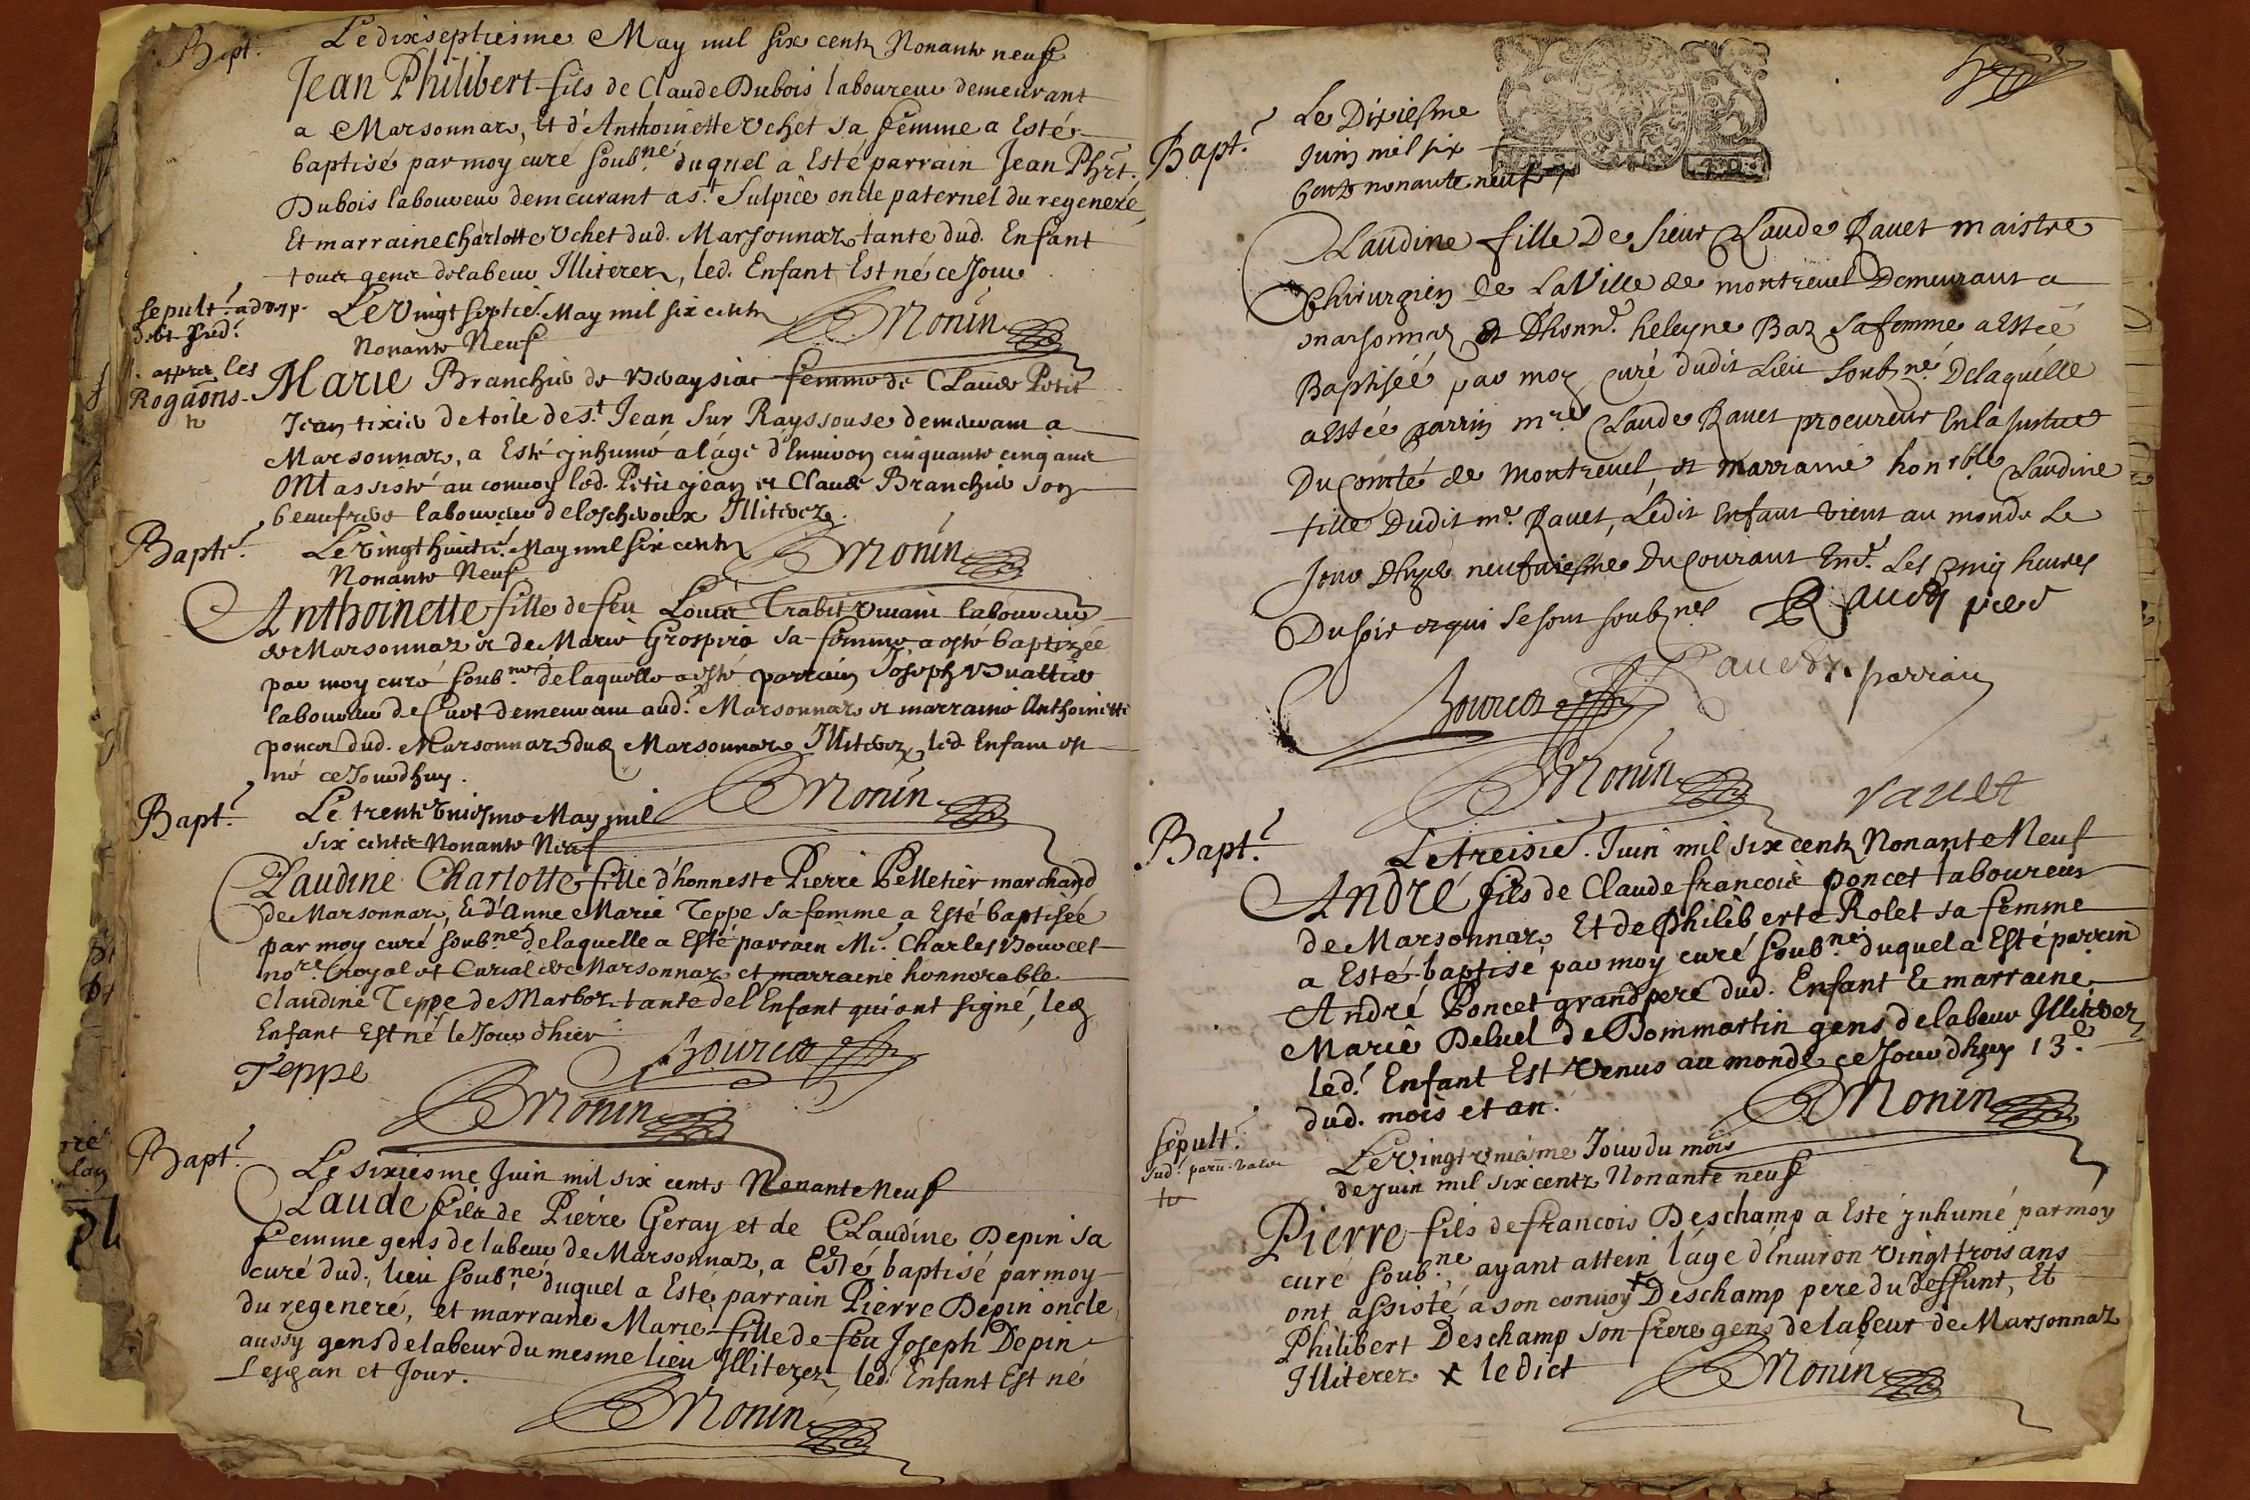 Bapt.
Le dixseptiesme May mil six centz Nonante neuf
Jean Philibert fils de Claude Dubois laboureur demeurant
a Marsonnaz, Et d'Anthoinette Uchet sa femme a Esté
baptisé par moy curé soub.né duquel a Esté parrain Jean Phrt.
Dubois laboureur demeurant a st. Sulpice oncle paternel du regeneré,
Et marraine Charlotte Uchet dud. Marsonnaz tante dud. Enfant
tous gens de labeur Illiterez, led. Enfant Est né ce Jour
Monin
sepult.
apres les
Rogaōns
Le Vingt septie. May mil six centz
Nonante Neuf
Marie Branchu de femme de Claude Petit
Jean tixier de toile de st. Jean sur Rayssouse demeurant a
Marsonnaz, a Esté ynhumé a l'âge d'Environ cinquante cinq ans
Ont assisté au convoy led. Petit Jean et Claude Branchu son
beaufrere laboureur Illiterez.
Monin
Bapt.
Le vingt huictie. May mil six centz
Nonante Neuf
Anthoinette fille de feu Louis laboureur
de Marsonnaz et de Marie Grospiro sa femme, a esté baptizée
par moy curé soub.né de laquelle a esté parrain Joseph
laboureur de Curt demeurant aud. Marsonnaz et marraine Anthoinette
poncet dud. Marsonnaz dud Marsonnaz Illiterez, led. Enfant est
né ce Jourdhuy.
Monin
Bapt.
Le trente Uniesme May mil
six centz Nonante Neuf
Claudine Charlotte fille d'honneste Pierre Pelletier marchand
de Marsonnaz, Et d'Anne Marie Teppe sa femme, a Esté baptisée
par moy curé soub.né de laquelle a Esté parrain Me. Charles Bourcet
nore. royal et Curial de Marsonnaz et marraine honnorable
Claudine Teppe de Marboz tante de l'Enfant qui ont signé, led
Enfant Est né le Jour d'hier
Teppe
Bourcet
Monin
Bapt.
Le sixiesme Juin mil six cents Nonante Neuf
Claude fils de Pierre Geray et de Claudine Depin sa
femme gens de labeur de Marsonnaz, a Esté baptisé par moy
curé dud. lieu soub.né duquel a Esté parrain Pierre Depin oncle
du regeneré, et marraine Marie fille de feu Joseph Depin
aussy gens de labeur du mesme lieu Illiterez, led. Enfant Est né
Lesd an et Jour.
Monin
Bapt.
Le Dixiesme
Juin mil six
Centz nonante neuf
Claudine fille De sieur Claude Ravet maistre
Chirurgien de La Ville de montrevel Demeurant a
marsonnaz et D'honn. heleyne Baz sa femme a Estéé
Baptiséé par moy curé dudit Lieu soubné. De laquélle
a Estéé parrin mre. Claude Ravet procureur En la Justice
Du Comté de Montrevel, et marraine honrble Claudine
fille Dudit me. Ravet, Ledit Enfant vient au monde Le
Jour D'hyer neufviesme Du Courant Env. Les Cinq heures
Du soir et qui se sont soubznes Ravet pere
Ravet parrain
Bourcet
Monin
ravet
Bapt.
Le treisie. Juin mil six centz Nonante Neuf
André fils de Claude francois poncet laboureur
de Marsonnaz, Et de Philiberte Rolet sa femme
a Esté baptisé par moy curé soub.né duquel a Esté parrin
André Poncet grand pere dud. Enfant Et marraine
Marie Deluel de Dommartin gens de labeur Illiterez
led. Enfant Est Venus au monde ce Jourdhuy 13e
dud. mois et an.
Monin
Sepult.
Le vingt uniesme Jour du mois
de juin mil six centz Nonante neuf
Pierre fils de francois Deschamp a Esté ynhumé par moy
curé soub.né, ayant attein l'âge d'Environ vingt trois ans
ont assisté a son convoy x Deschamp pere du deffunt, Et
Philibert Deschamp son frere gens de labeur de Marsonnaz
Illiterez x le dict
Monin